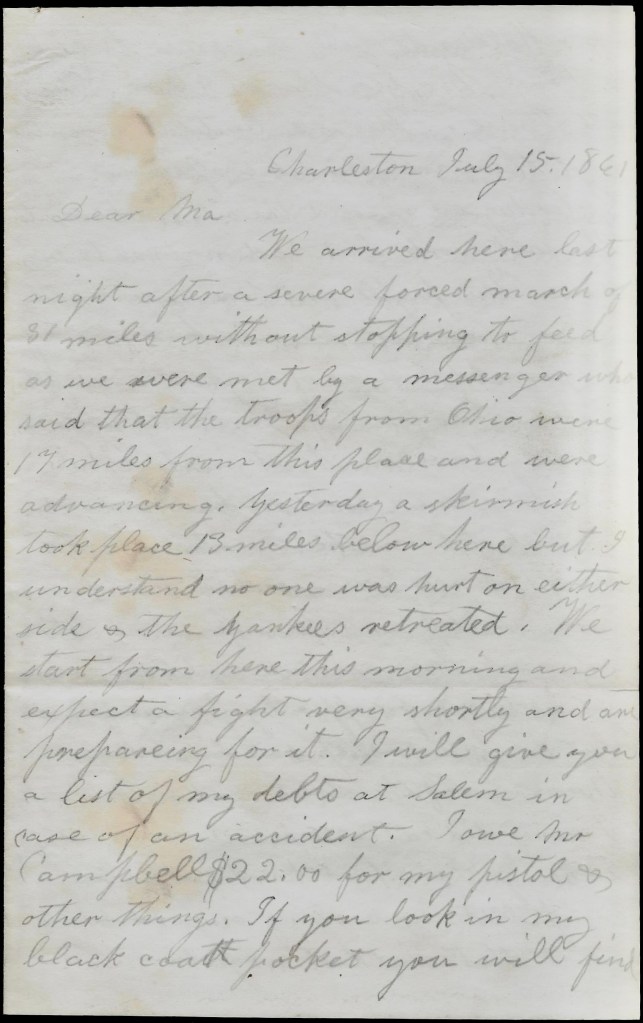 Charleston July 15. 1861
Dear Ma
We arrived here last
night after a severe forced march of
31 miles without stopping to feed
as we were met by a messenger who
said that the troops from Ohio were
17 miles from this place and were
advancing. Yesterday a skirmish
took place 13 miles below here but I
understand no one was hurt on either
side & the Yankees retreated. We
start from here this morning and
expect a fight very shortly and are
prepareing for it. I will give you
a list of my debts at Salem in
case of an accident. I owe Mr
Campbell $22.00 for my pistol &
other things. If you look in my
black coatt pocket you will find